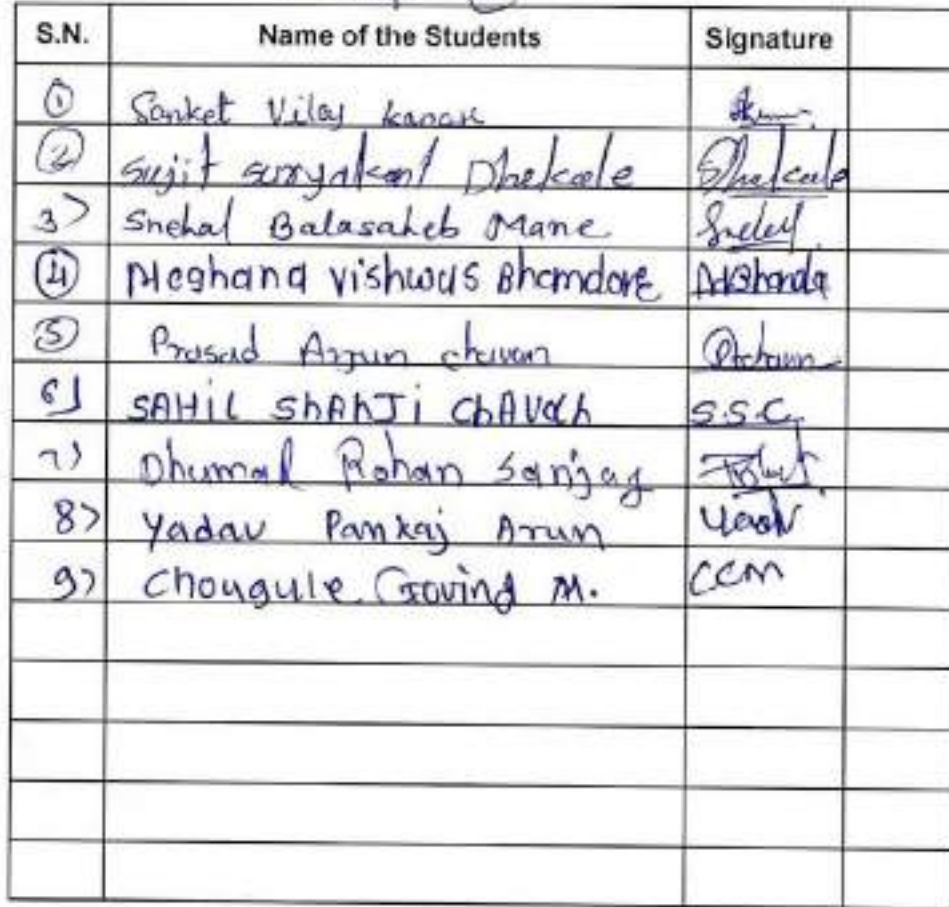 S.N. Name of the Students Signature
1 Sanket Vilas
2 Sujit suryakant Dhekale Dhekale
3) Snehal Balasaheb Mane Snehal
4 Meghana vishwas Bhamdare
5 Prasad Arjun chavan
6] SAHIL ShAhJi ChAVAh S.S.C.
7) Dhumal Rohan Sanjay
8) Yadav Pankaj Arun
9) Chougule Govind M. CCM